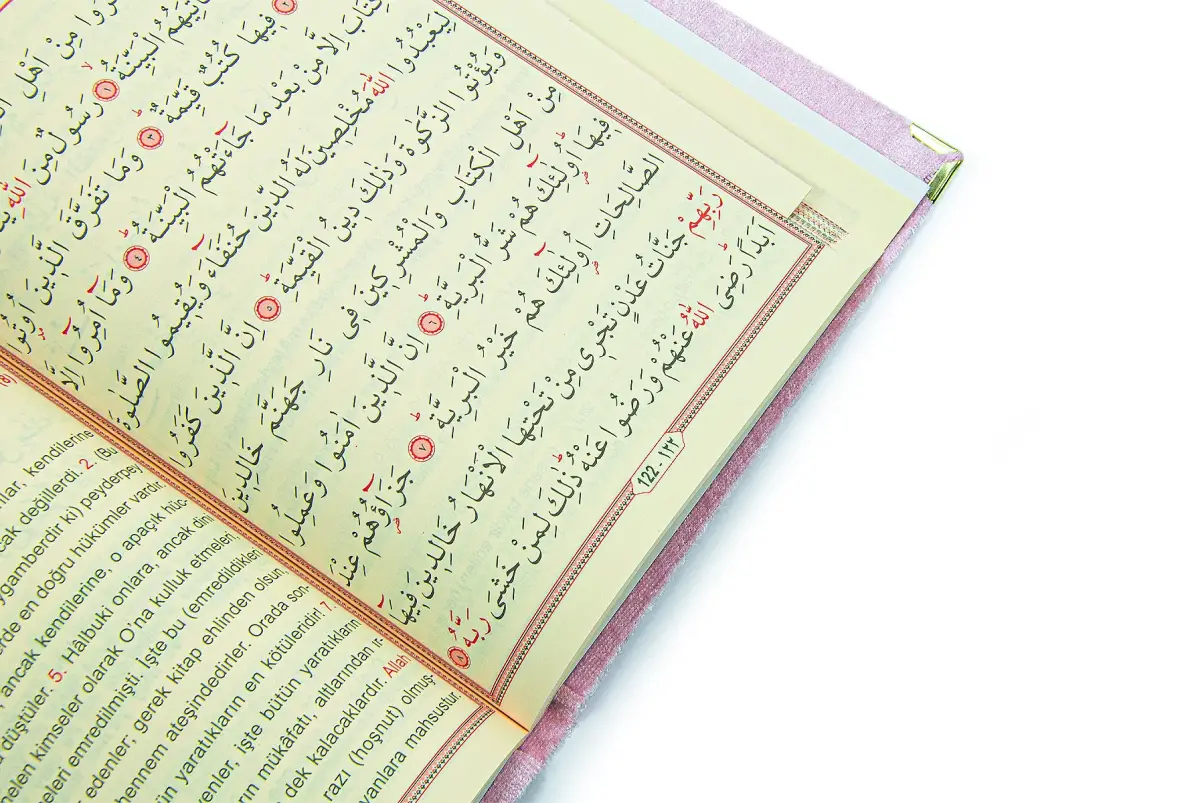 مِنْ اَهْلِ
الْبَيِّنَةُۙ ١ رَسُولٌ مِنَ اللّٰهِ
٢ فِيهَا كُتُبٌ قَيِّمَةٌۜ ٣ وَمَا تَفَرَّقَ الَّذِينَ اُوتُوا
كِتَابَ اِلَّا مِنْ بَعْدِ مَا جَٓاءَتْهُمُ الْبَيِّنَةُۜ ٤ وَمَٓا اُمِرُٓوا اِلَّا
لِيَعْبُدُوا اللّٰهَ مُخْلِصِينَ لَهُ الدِّينَ حُنَفَٓاءَ وَيُقِيمُوا الصَّلٰوةَ
وَيُؤْتُوا الزَّكٰوةَ وَذٰلِكَ دِينُ الْقَيِّمَةِۜ ٥ اِنَّ الَّذِينَ كَفَرُوا
مِنْ اَهْلِ الْكِتَابِ وَالْمُشْرِكِينَ فِى نَارِ جَهَنَّمَ خَالِدِينَ
فِيهَاۜ اُولٰٓئِكَ هُمْ شَرُّ الْبَرِيَّةِۜ ٦ اِنَّ الَّذِينَ اٰمَنُوا وَعَمِلُوا
الصَّالِحَاتِ اُولٰٓئِكَ هُمْ خَيْرُ الْبَرِيَّةِۜ ٧ جَزَٓاؤُهُمْ عِنْدَ
رَبِّهِمْ جَنَّاتُ عَدْنٍ تَجْرِى مِنْ تَحْتِهَا الْاَنْهَارُ خَالِدِينَ فِيهَٓا
اَبَدًاۜ رَضِىَ اللّٰهُ عَنْهُمْ وَرَضُوا عَنْهُۜ ذٰلِكَ لِمَنْ خَشِىَ رَبَّهُ ٨
122 - ١٢٢
kendilerine
değillerdi. 2. (Bu
ygamberdir ki) peyderpey
erde en doğru hükümler vardır.
ancak kendilerine, o apaçık hüc-
düştüler. 5. Hâlbuki onlara, ancak dini
kimseler olarak O'na kulluk etmeleri,
emredilmişti. İşte bu (emredildikleri
edenler, gerek kitap ehlinden olsun
hennem ateşindedirler. Orada son-
işte bütün yaratıkların en kötüleridir! 7.
yaratıkların en
mükâfatı, altlarından ır-
dek kalacaklardır. Allah
razı (hoşnut) olmuş-
yanlara mahsustur.